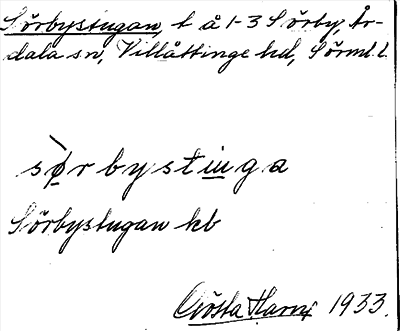 Sörbystugan, t å 1-3 Sörby, År-
dala sn, Villåttinge hd, Sörml. l.
sørbystuga
Sörbystugan kb
Gösta Harni 1933.